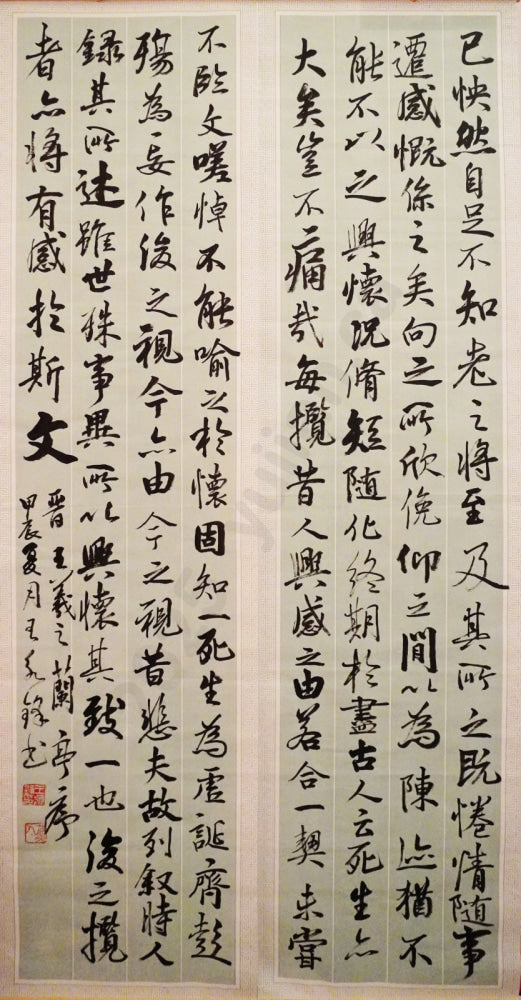 已怏然自足不知老之將至及其所之既惓情随事
遷感慨係之矣向之所欣俛仰之間以為陳迹猶不
能不以之興懷況脩短随化終期於盡古人云死生亦
大矣豈不痛哉每攬昔人興感之由若合一契未嘗
不臨文嗟悼不能喻之於懷固知一死生為虛誕齊彭
殤為妄作後之視今亦由今之視昔悲夫故列叙時人
録其所述雖世殊事異所以興懷其致一也後之攬
者亦將有感於斯文
晉王羲之蘭亭序
甲辰夏月王永鋒书